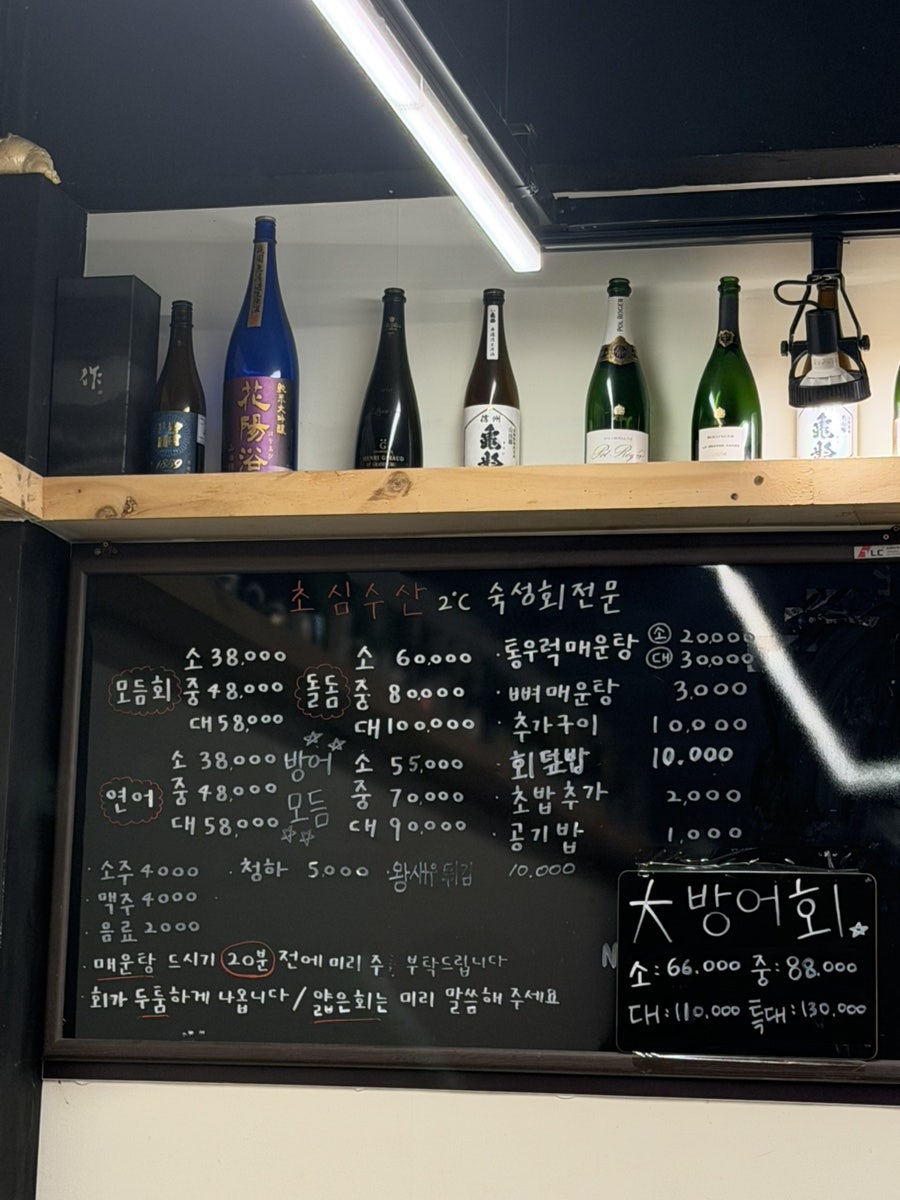 作
1859
花陽浴
純米大吟醸
HENRI GIRAUD
信州
亀齢
POL ROGER
CHAMPAGNE
Pol Roger
BOLLINGER
亀齢
LC
초심수산 2°C 숙성회전문
모듬회
소 38,000
중 48,000
대 58,000
돌돔
소 60,000
중 80,000
대 100,000
·통우럭매운탕 소 20,000
대 30,000
·뼈매운탕 3,000
·추가구이 10,000
·회덮밥 10.000
·초밥추가 2,000
·공기밥 1,000
연어
소 38,000
중 48,000
대 58,000
방어
모듬
소 55,000
중 70,000
대 90,000
·소주 4000 ·청하 5,000 ·왕새우튀김 10.000
·맥주 4000
·음료 2000
·매운탕 드시기 20분 전에 미리 주 부탁드립니다
·회가 두툼하게 나옵니다/얇은회는 미리 말씀해주세요
大방어회
소:66.000 중:88.000
대:110.000 특대:130.000